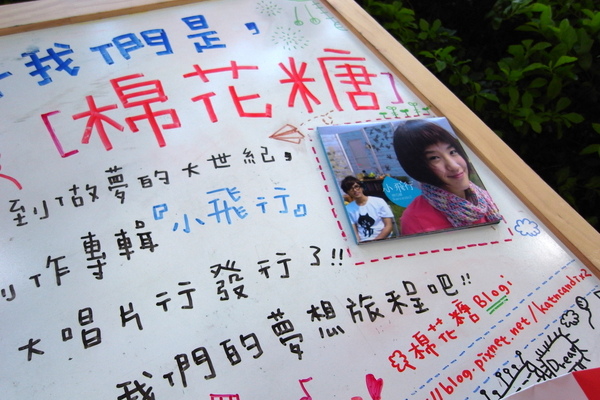 我們是,
[棉花糖]
到做夢的大世紀,
作專輯『小飛行』
大唱片行發行了!!
我們的夢想旅程吧!!
小飛行
棉花糖Blog:
//blog.pixnet.net/kathcandix2